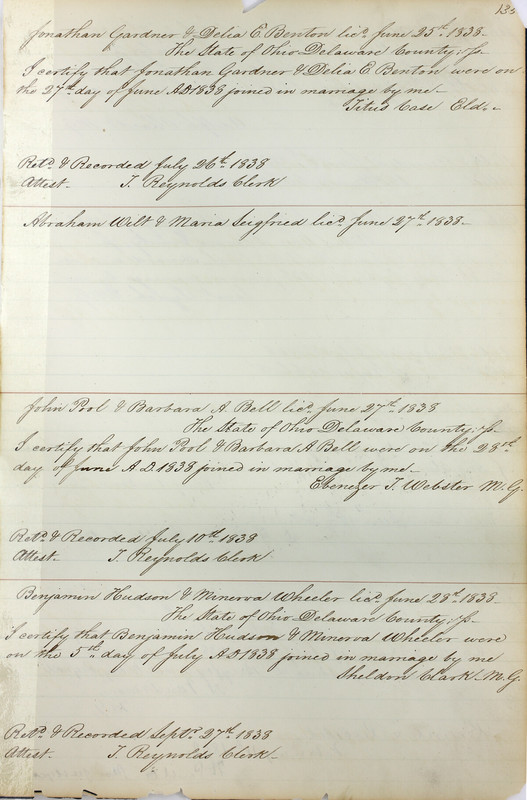 Jonathan Gardner & Delia E. Benton licd. June 25th. 1838.
The State of Ohio Delaware County; Ss.
I certify that Jonathan Gardner & Delia E. Benton were on
the 27th day of June A.D 1838 joined in marriage by me
Titus Case Eld.
Retd. & Recorded July 26th. 1838
Attest. T. Reynolds Clerk
Abraham Wilt & Maria Seigfried licd. June 27th. 1838.
John Pool & Barbara A. Bell licd. June 27th. 1838
The State of Ohio Delaware County; Ss.
I certify that John Pool & Barbara A Bell were on the 28th
day of June A.D. 1838 joined in marriage by me
Ebenezer T. Webster M.G.
Retd. & Recorded July 10th. 1838
Attest. T. Reynolds Clerk
Benjamin Hudson & Minerva Wheeler licd. June 28th. 1838.
The State of Ohio Delaware County; Ss.
I certify that Benjamin Hudson & Minerva Wheeler were
on the 5th. day of July A.D 1838 joined in marriage by me
Sheldon Clark M.G.
Retd. & Recorded Septr. 27th. 1838
Attest. T. Reynolds Clerk